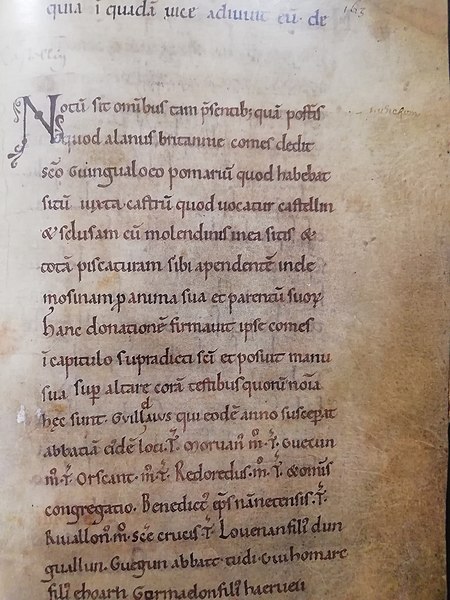 quia i quadā vice adiuuit eū. de
163
Notū sit omībus tam p̄sentib; quā post̄is
quod alanus britannie comes dedit
sc̄o Guingualoeo pomariū quod habebat
sitū iuxta castrū quod uocatur castellin
& selusam cū molendinis in ea sitis &
totā piscaturam sibi apendentē in ele
mosinam ꝓ anima sua et parentū suoꝝ
hanc donationē firmauit ipse comes
ī capitulo supradicti sc̄i et posuit manu
sua sup̄ altare corā testibus quorū noīa
hec sunt. Guillauus qui eodē anno suscep̄at
abbatiā eidē loci. T̄. Moruan. m̄. T̄. Guegun
m̄. T̄. Orscant. m̄. T̄. Redoredus. m̄. T̄. & om̄is
congregatio. Benedict᷒ ep̄s nānetensis. T̄.
Riuallon᷒. m̄. sc̄e crucis. T̄. Louenan fili᷒ dun
guallun. Guegun abbatē tudi. Guihomarc
fili᷒ ehoarn Gurmaelon fili᷒ haerueu